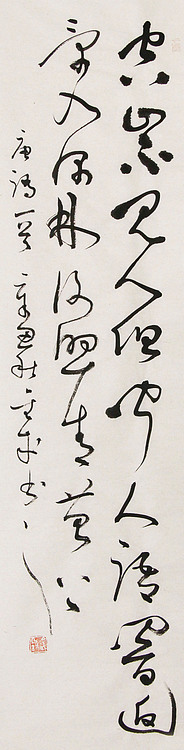 空山不見人但聞人語響返
景入深林復照青苔上
唐詩一首 秋 書